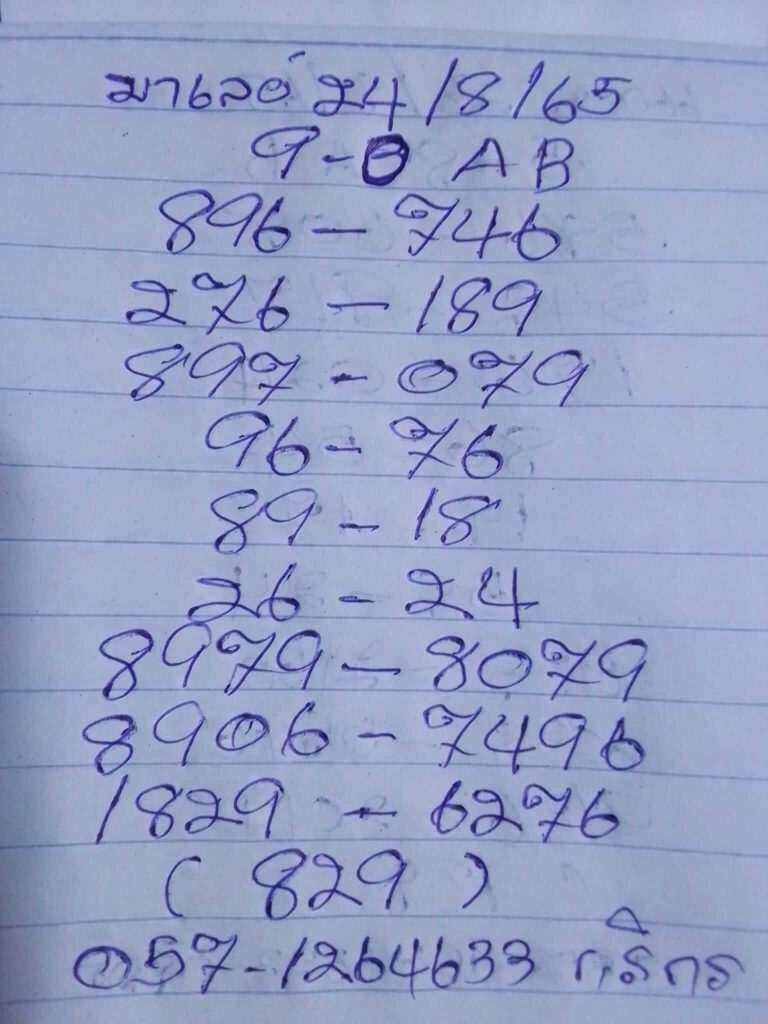 มาเลย์ 24/8/65
9-0 AB
896 - 746
276 - 189
897 - 079
96 - 76
89 - 18
26 - 24
8979 - 8079
8906 - 7496
1829 - 6276
( 829 )
057-1264633 กสิกร